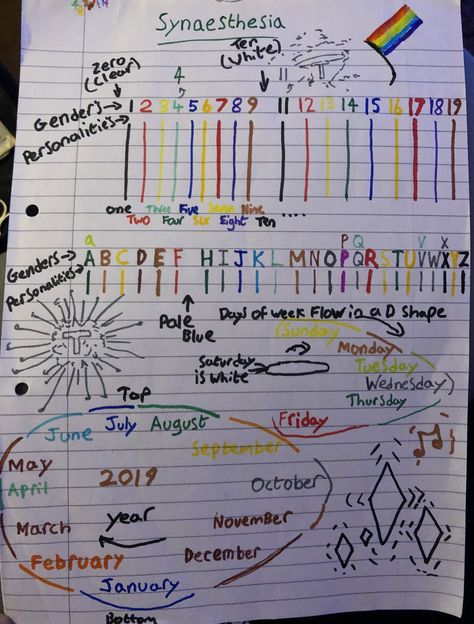 Synaesthesia
Zero (Clear)
4
Ten (White)
11
T
Genders → 1 2 3 4 5 6 7 8 9 11 12 13 14 15 16 17 18 19
Personalities →
one Three Five Seven Nine ....
Two Four Six Eight Ten
a P Q V X
Genders → A B C D E F H I J K L M N O P Q R S T U V W X Y Z
Personalities →
Pale Blue
Days of week Flow in a D shape
(Sunday
Monday
Saturday is White
Tuesday
Wednesday
Thursday
Friday
T
Top
June July August
September
May
April
2019
October
March
year
November
February
December
January
Bottom